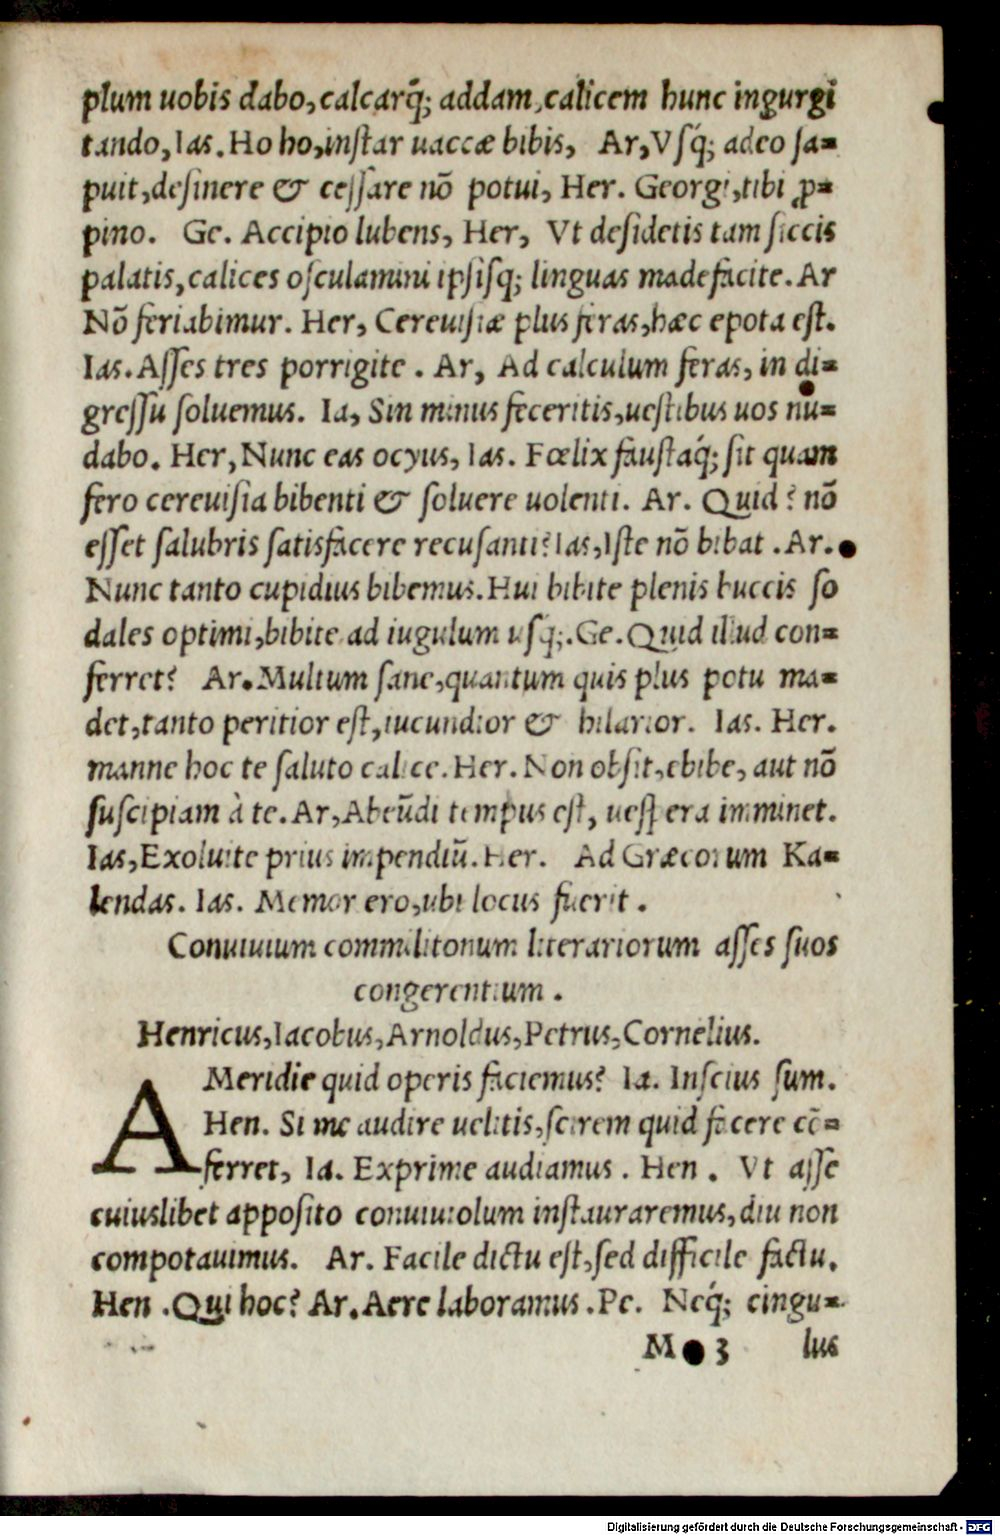 plum uobis dabo, calcarq́; addam, calicem hunc ingurgi
tando, Ias. Ho ho, instar uaccæ bibis, Ar, Vsq́; adeo sa=
puit, desinere & cessare nõ potui, Her. Georgi, tibi ꝓ=
pino. Ge. Accipio lubens, Her, Vt desidetis tam siccis
palatis, calices osculamini ipsisq; linguas madefacite. Ar
Nõ feriabimur. Her, Cereuisiæ plus feras, hæc epota est.
Ias. Asses tres porrigite . Ar, Ad calculum feras, in di=
gressu soluemus. Ia, Sin minus feceritis, uestibus uos nu=
dabo. Her, Nunc eas ocyus, Ias. Fœlix faustaq́; sit quam
fero cereuisia bibenti & soluere uolenti. Ar. Quid? nõ
esset salubris satisfacere recusanti? Ias, Iste nõ bibat . Ar.
Nunc tanto cupidius bibemus. Hui bibite plenis buccis so
dales optimi, bibite ad iugulum usq́;. Ge. Quid illud con=
ferret? Ar. Multum sane, quantum quis plus potu ma=
det, tanto peritior est, iucundior & hilarior. Ias. Her.
manne hoc te saluto calice. Her. Non obsit, ebibe, aut nõ
suscipiam à te. Ar, Abeũdi tempus est, uespera imminet.
Ias, Exoluite prius impendiũ. Her. Ad Græcorum Ka=
lendas. Ias. Memor ero, ubi locus fuerit .
Conuiuium commilitonum literariorum asses suos
congerentium .
Henricus, Iacobus, Arnoldus, Petrus, Cornelius.
A Meridie quid operis faciemus? Ia. Inscius sum.
Hen. Si me audire uelitis, scirem quid facere cõ=
ferret, Ia. Exprime audiamus . Hen . Vt asse
cuiuslibet apposito conuiuiolum instauraremus, diu non
compotauimus. Ar. Facile dictu est, sed difficile factu.
Hen . Qui hoc? Ar. Aere laboramus . Pe. Neq́; cingu=
M 3 lus
Digitalisierung gefördert durch die Deutsche Forschungsgemeinschaft - DFG